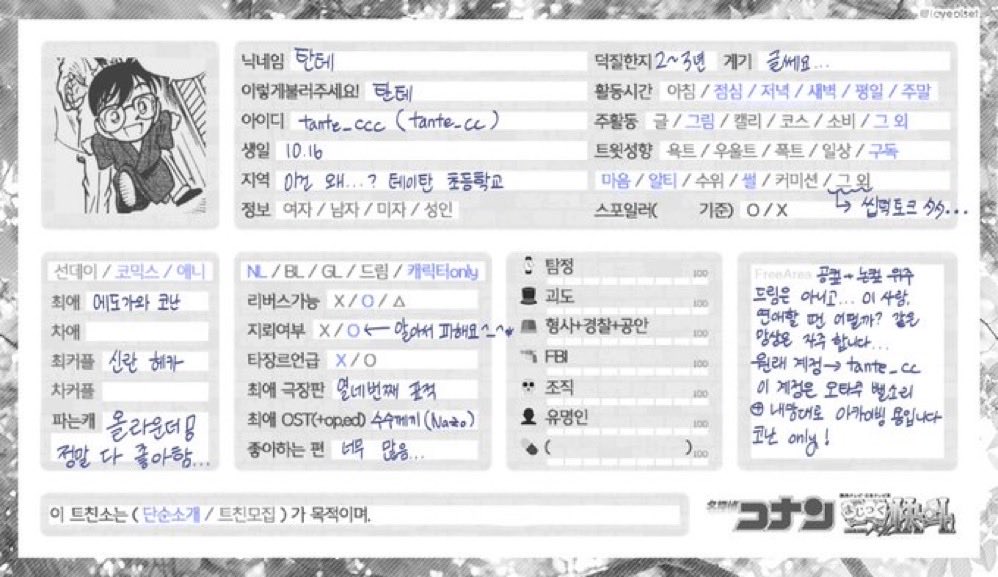 @loveofset
닉네임 탄테
덕질한지 2~3년 계기 글쎄요...
이렇게불러주세요! 탄테
활동시간 아침 / 점심 / 저녁 / 새벽 / 평일 / 주말
아이디 tante_ccc (tante_cc)
주활동 글 / 그림 / 캘리 / 코스 / 소비 / 그 외
생일 10.16
트윗성향 욕트 / 우울트 / 폭트 / 일상 / 구독
지역 이건 왜...? 테이탄 초등학교
마음 / 알티 / 수위 / 썰 / 커미션 / 그 외
정보 여자 / 남자 / 미자 / 성인
스포일러( 기준) O / X
↳ 씹덕토크
선데이 / 코믹스 / 애니
최애 에도가와 코난
차애
최커플 신란 헤카
차커플
파는캐 올라운더
정말 다 좋아함...
NL / BL / GL / 드림 / 캐릭터only
리버스가능 X / O / △
지뢰여부 X / O ← 알아서 피해요^_^*
타장르언급 X / O
최애 극장판 열네번째 표적
최애 OST(+op.ed) 수수께끼 (Nazo)
좋아하는 편 너무 많음...
탐정 100
괴도 100
형사+경찰+공안 100
FBI 100
조직 100
유명인 100
( ) 100
FreeArea 공컾 → 논컾 위주
드림은 아니고... 이 사람,
연애할 땐 어떨까? 같은
망상은 자주 합니다...
원래 계정→ tante_cc
이 계정은 오타쿠 뻘소리
⊕ 내맘대로 아카이빙 용입니다
코난 only!
이 트친소는 ( 단순소개 / 트친모집 ) 가 목적이며,
名探偵コナン